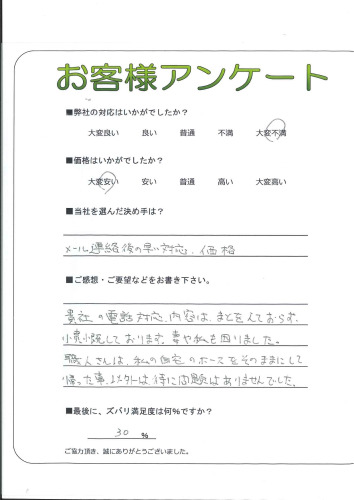 お客様アンケート
■弊社の対応はいかがでしたか?
大変良い 良い 普通 不満 大変不満
■価格はいかがでしたか?
大変安い 安い 普通 高い 大変高い
■当社を選んだ決め手は?
メール連絡後の早い対応、価格
■ご感想・ご要望などをお書き下さい。
貴社の電話対応、内容は、まとをえておらず、
しております。妻や私も困りました。
職人さんは、私の自宅のホースをそのままにして
帰った事、以外は特に問題はありませんでした。
■最後に、ズバリ満足度は何%ですか?
30 %
ご協力頂き、誠にありがとうございました。